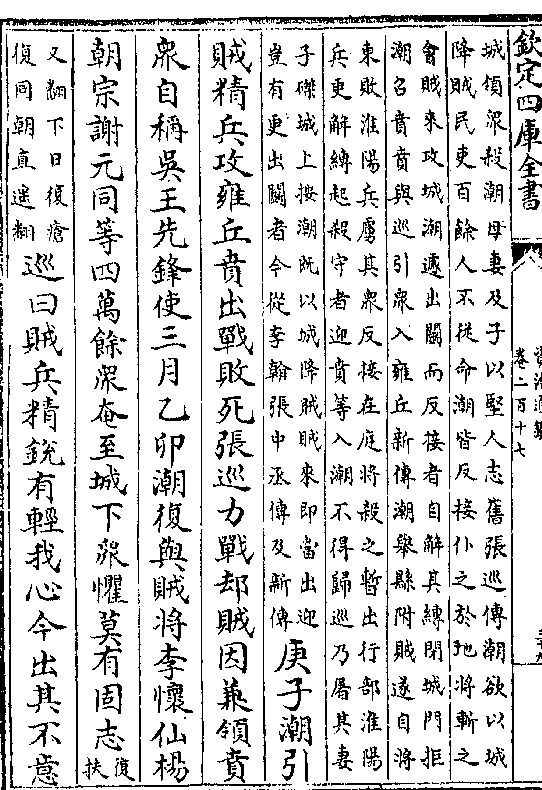 欽定四庫全書
卷二百十七
城領衆殺潮母妻及子以堅人志舊張巡傳潮欲以城
降賊民吏百餘人不從命潮皆反接仆之於地將斬之
會賊來攻城潮遽出鬬而反接者自解其縛閉城門拒
潮召賁賁與巡引衆入雍丘新傳潮舉縣附賊遂自將
東敗淮陽兵虜其衆反接在庭將殺之暫出行部淮陽
兵更解縛起殺守者迎賁等入潮不得歸巡乃屠其妻
子磔城上按潮既以城降賊賊來即當出迎
豈有更出鬬者今從李翰張中丞傳及新傳
庚子潮引
賊精兵攻雍丘賁出戰敗死張巡力戰却賊因兼領賁
衆自稱吳王先鋒使三月乙卯潮復與賊將李懷仙楊
朝宗謝元同等四萬餘衆奄至城下衆懼莫有固志
復
扶
又翻下日復瘡
復同朝直遙翻
巡曰賊兵精銳有輕我心今出其不意